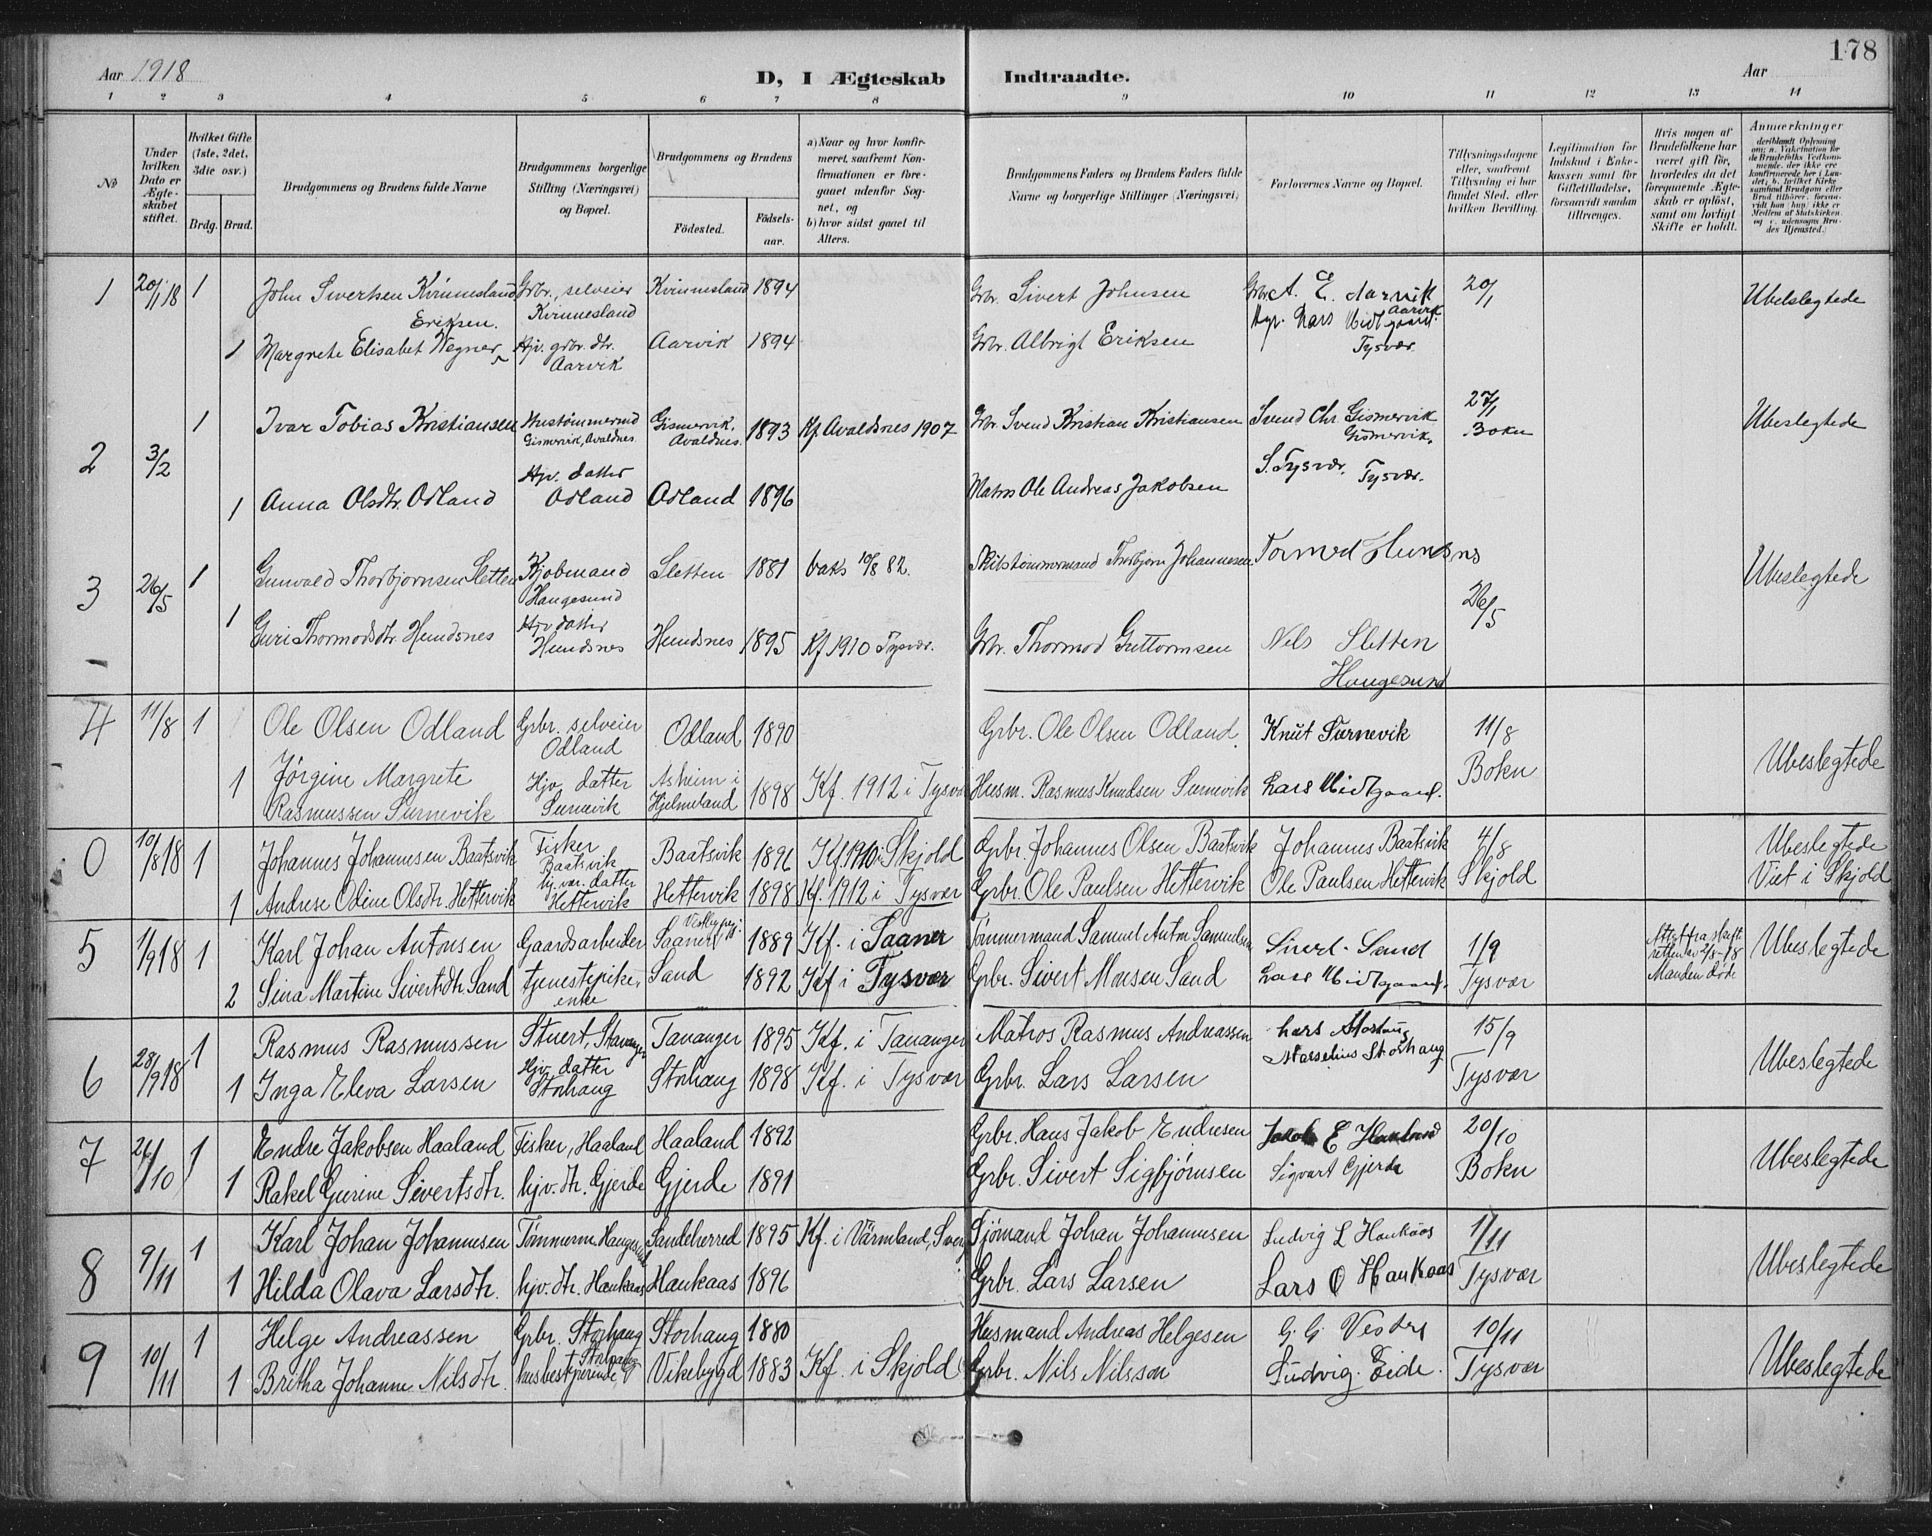 178
Aar 1918
D, I Ægteskab Indtraadte.
Aar
1 2 3 4 5 6 7 8 9 10 11 12 13 14
No
Under hvilken Dato er Ægteskabet stiftet.
Hvilket Gifte (1ste, 2det, 3die osv.)
Brdg. Brud.
Brudgommens og Brudens fulde Navne
Brudgommens borgerlige Stilling (Næringsvei) og Bopæl.
Brudgommens og Brudens
Fødested.
Fødselsaar.
a) Naar og hvor konfirmeret, saafremt Konfirmationen er foregaaet udenfor Sognet, og
b) hvor sidst gaaet til Alters.
Brudgommens Faders og Brudens Faders fulde Navne og borgerlige Stillinger (Næringsvei)
Forlovernes Navne og Bopæl.
Tillysningsdagene eller, saafremt Tillysning ei har fundet Sted, efter hvilken Bevilling.
Legitimation for Indskud i Enkekassen samt for Giftetilladelse, forsaavidt saadan tiltrænges.
Hvis nogen af Brudefolkene har været gift før, hvorledes da det foregaaende Ægteskab er opløst, samt om lovligt Skifte er holdt.
Anmærkninger
1 20/1 18 1 John Sivertsen Kvinnesland Grbr., selveier Kvinnesland Kvinnesland 1894 Grbr. Sivert Johnsen Grbr. A. E. Aarvik Aarvik 20/1 Ubelslegtede
1 Margrete Elisabet Wegner Eriksen. Hjv. grbr. dtr. Aarvik Aarvik 1894 Grbr. Albrigt Eriksen Lars Midtgaard. Tysvær.
2 3/2 1 Ivar Tobias Kristiansen Gismervik, Avaldnes Gismervik, Avaldnes. 1893 Kf. Avaldsnes 1907 Grbr. Svend Kristian Kristiansen Svend Chr. Gismervik Gismervik. 27/1 Bokn Ubeslegtede
1 Anna Olsdtr. Odland Hjv. datter Odland Odland 1896 Matros Ole Andreas Jakobsen S. Tysvær. Tysvær.
3 26/5 1 Gunvald Thorbjornsen Sletten Kjobmand Haugesund Sletten 1881 Vaks 10/8 82. Thorbjorn Johannesen Tormod Hundsnes 26/5 Ubeslegtede
1 Guri Thormodsdtr. Hundsnes Hjv datter Hundsnes Hundsnes 1895 Kf 1910 Tysvær. Grbr. Thormod Guttormsen Nels Sletten Haugesund
4 11/8 1 Ole Olsen Odland Grbr. selveier Odland Odland 1890 Grbr. Ole Olsen Odland. Knut Surnevik 11/8 Bokn Ubeslegtede
1 Jørgine Margrete Rasmussen Surnevik Hjv. datter Surnevik Asheim i Hjelmeland 1898 Kf. 1912 i Tysvær Husm. Rasmus Knudsen Surnevik Lars Midtgaard.
0 10/8 18 1 Johannes Johannesen Baatsvik Fisker Baatsvik Baatsvik 1896 Kf. 1910 i Skjold Grbr. Johannes Olsen Baatsvik Johannes Baatsvik 4/8 Skjold Ubeslegtede Viet i Skjold
1 Andrese Odine Olsdtr. Hettervik hj. vær. datter Hettervik Hettervik 1898 Kf. 1912 i Tysvær Grbr. Ole Paulsen Hettervik Ole Paulsen Hettervik
5 1/9 18 1 Karl Johan Antonsen Gaardsarbeider 1889 Kf. i Saaner Tømmermand Samuel Anton Samuelsen Sivert Sand 1/9 Tysvær Manden døde Ubeslegtede
2 Sina Martine Sivertsdtr. Sand tjenestepike, enke Sand 1892 Kf. i Tysvær Grbr. Sivert Monsen Sand Lars Midtgaard.
6 28/9 18 1 Rasmus Rasmussen Stuert, Stavanger Tananger 1895 Kf. i Tananger Matros Rasmus Andreassen Lars Storhaug 15/9 Tysvær Ubeslegtede
1 Inga Eleva Larsen Hjv. datter Storhaug Storhaug 1898 Kf. i Tysvær Grbr. Lars Larsen Marselius Storhaug
7 26/10 1 Endre Jakobsen Haaland Fisker, Haaland Haaland 1892 Grbr. Hans Jakob Endresen Jakob E Haaland 20/10 Bokn Ubeslegtede
1 Rakel Gurine Sivertsdtr. hjv. dtr. Gjerde Gjerde 1891 Grbr. Sivert Sigbjørnsen Sigvart Gjerde
8 9/11 1 Karl Johan Johannesen Tømmerm. Haugesund Sandeherred 1895 Kf. i Värmland, Sverig Sjømand Johan Johannesen Ludvig L Haukaas 1/11 Tysvær Ubeslegtede
1 Hilda Olava Larsdtr. hjv. dtr. Haukaas Haukaas 1896 Grbr. Lars Larsen Lars O Haukaas
9 10/11 1 Helge Andreassen Grbr. Storhaug Storhaug 1880 Husmand Andreas Helgesen 10/11 Tysvær Ubeslegtede
1 Britha Johanne Nilsdtr. husbestyrende Storhaug Vikebygd 1883 Kf. i Skjold Grbr. Nils Nilsson Ludvig Eide.